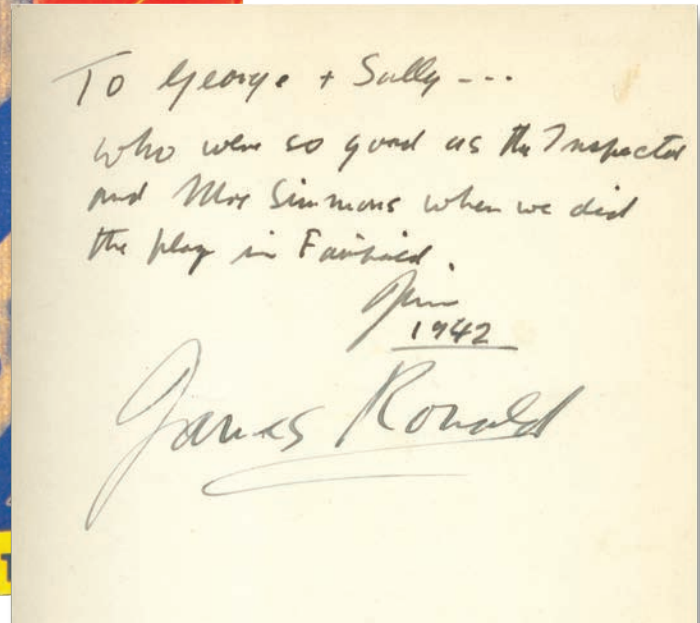 To George + Sally ---
who were so good as the Inspector
and Mrs Simmons when we did
the play in Fairfield.
Jim
1942
James Ronald